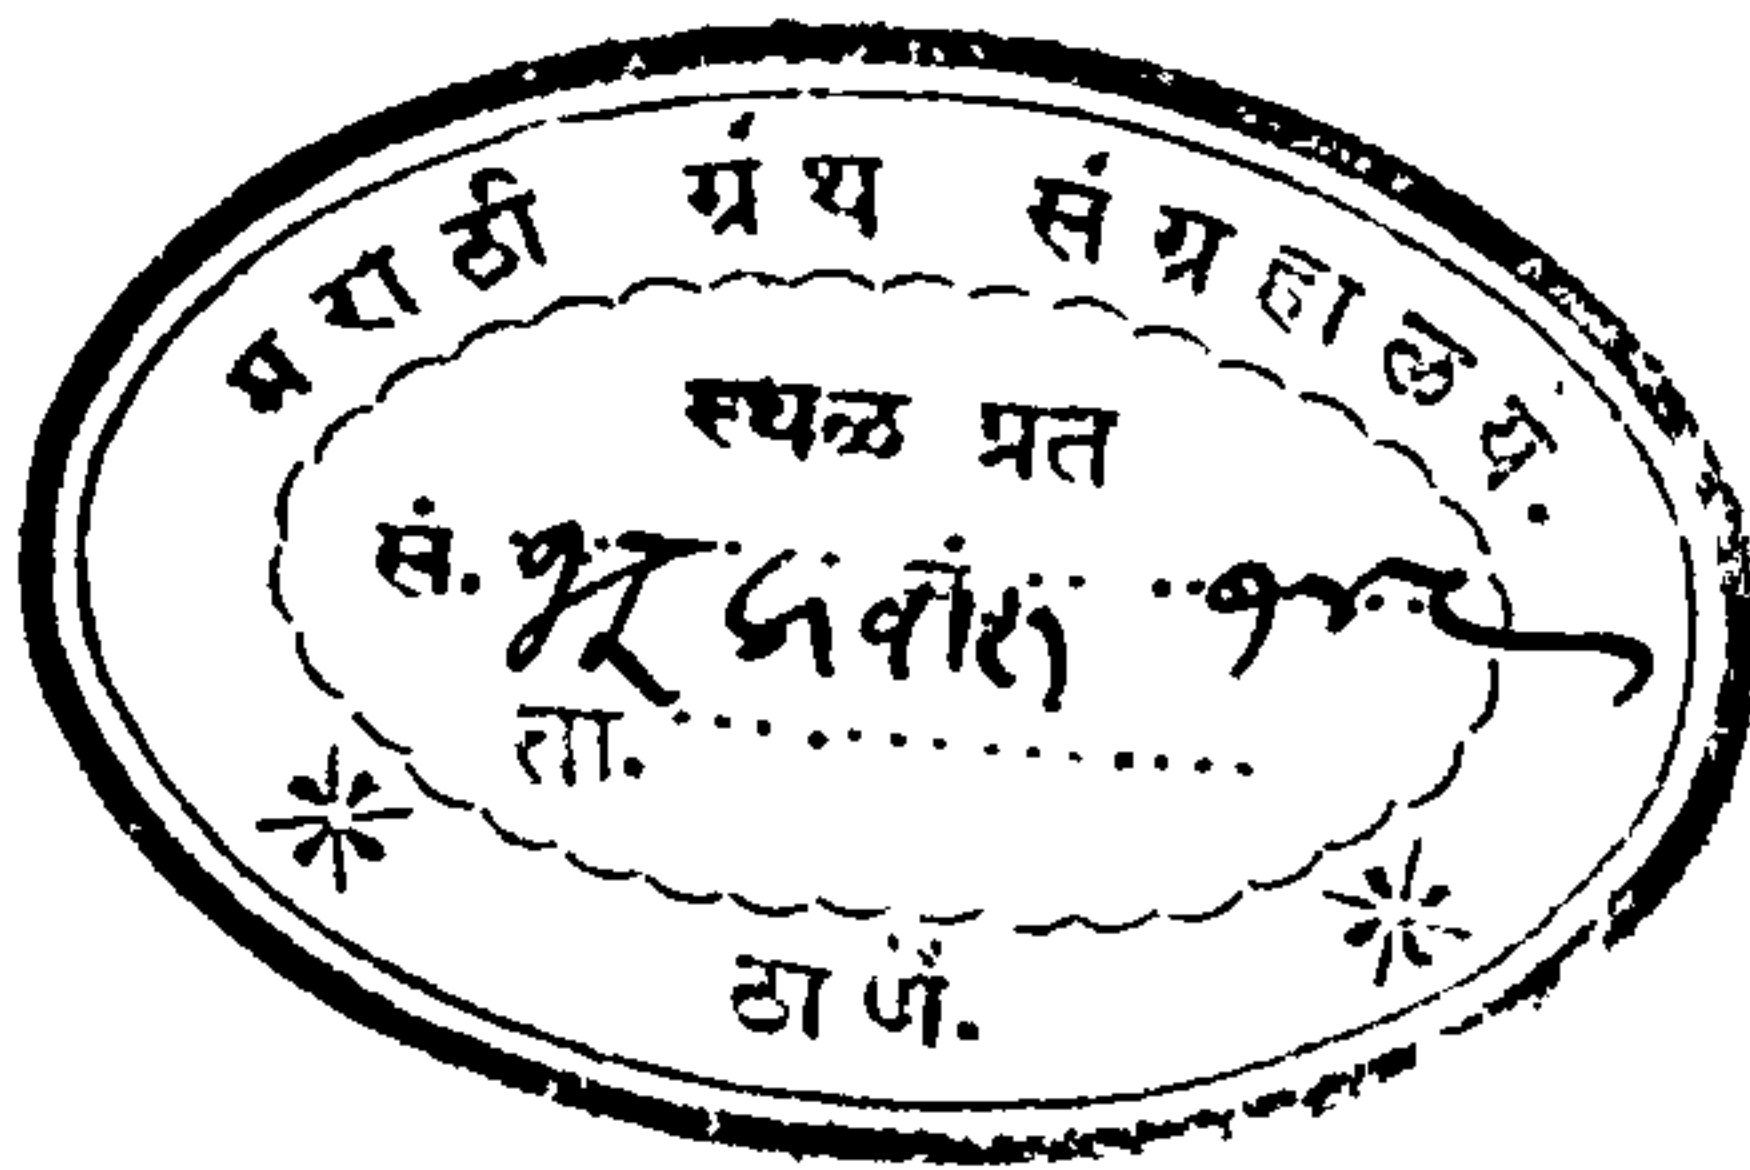 मराठी ग्रंथ संग्रहालय.
स्थळ प्रत
सं.
ता.
ठाणें.